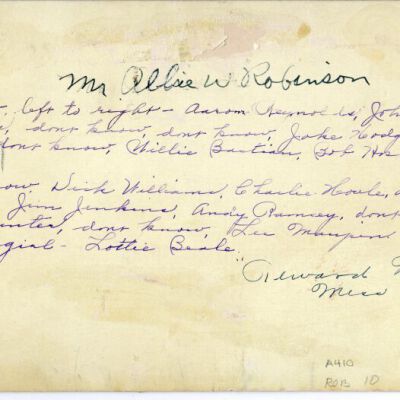 Mr Albie W. Robinson
left to right - Aarom Reynolds, Joh
dont know, dont know, Jake Hodg
dont know, Willie Bastian, Bob
ow, Dick Williams, Charlie Houle,
Jim Jenkins, Andy Ramsey, dont
unter, dont know, Lee Maupin
girl - Lottie Beale
Steward
Miss
A410
ROB 10